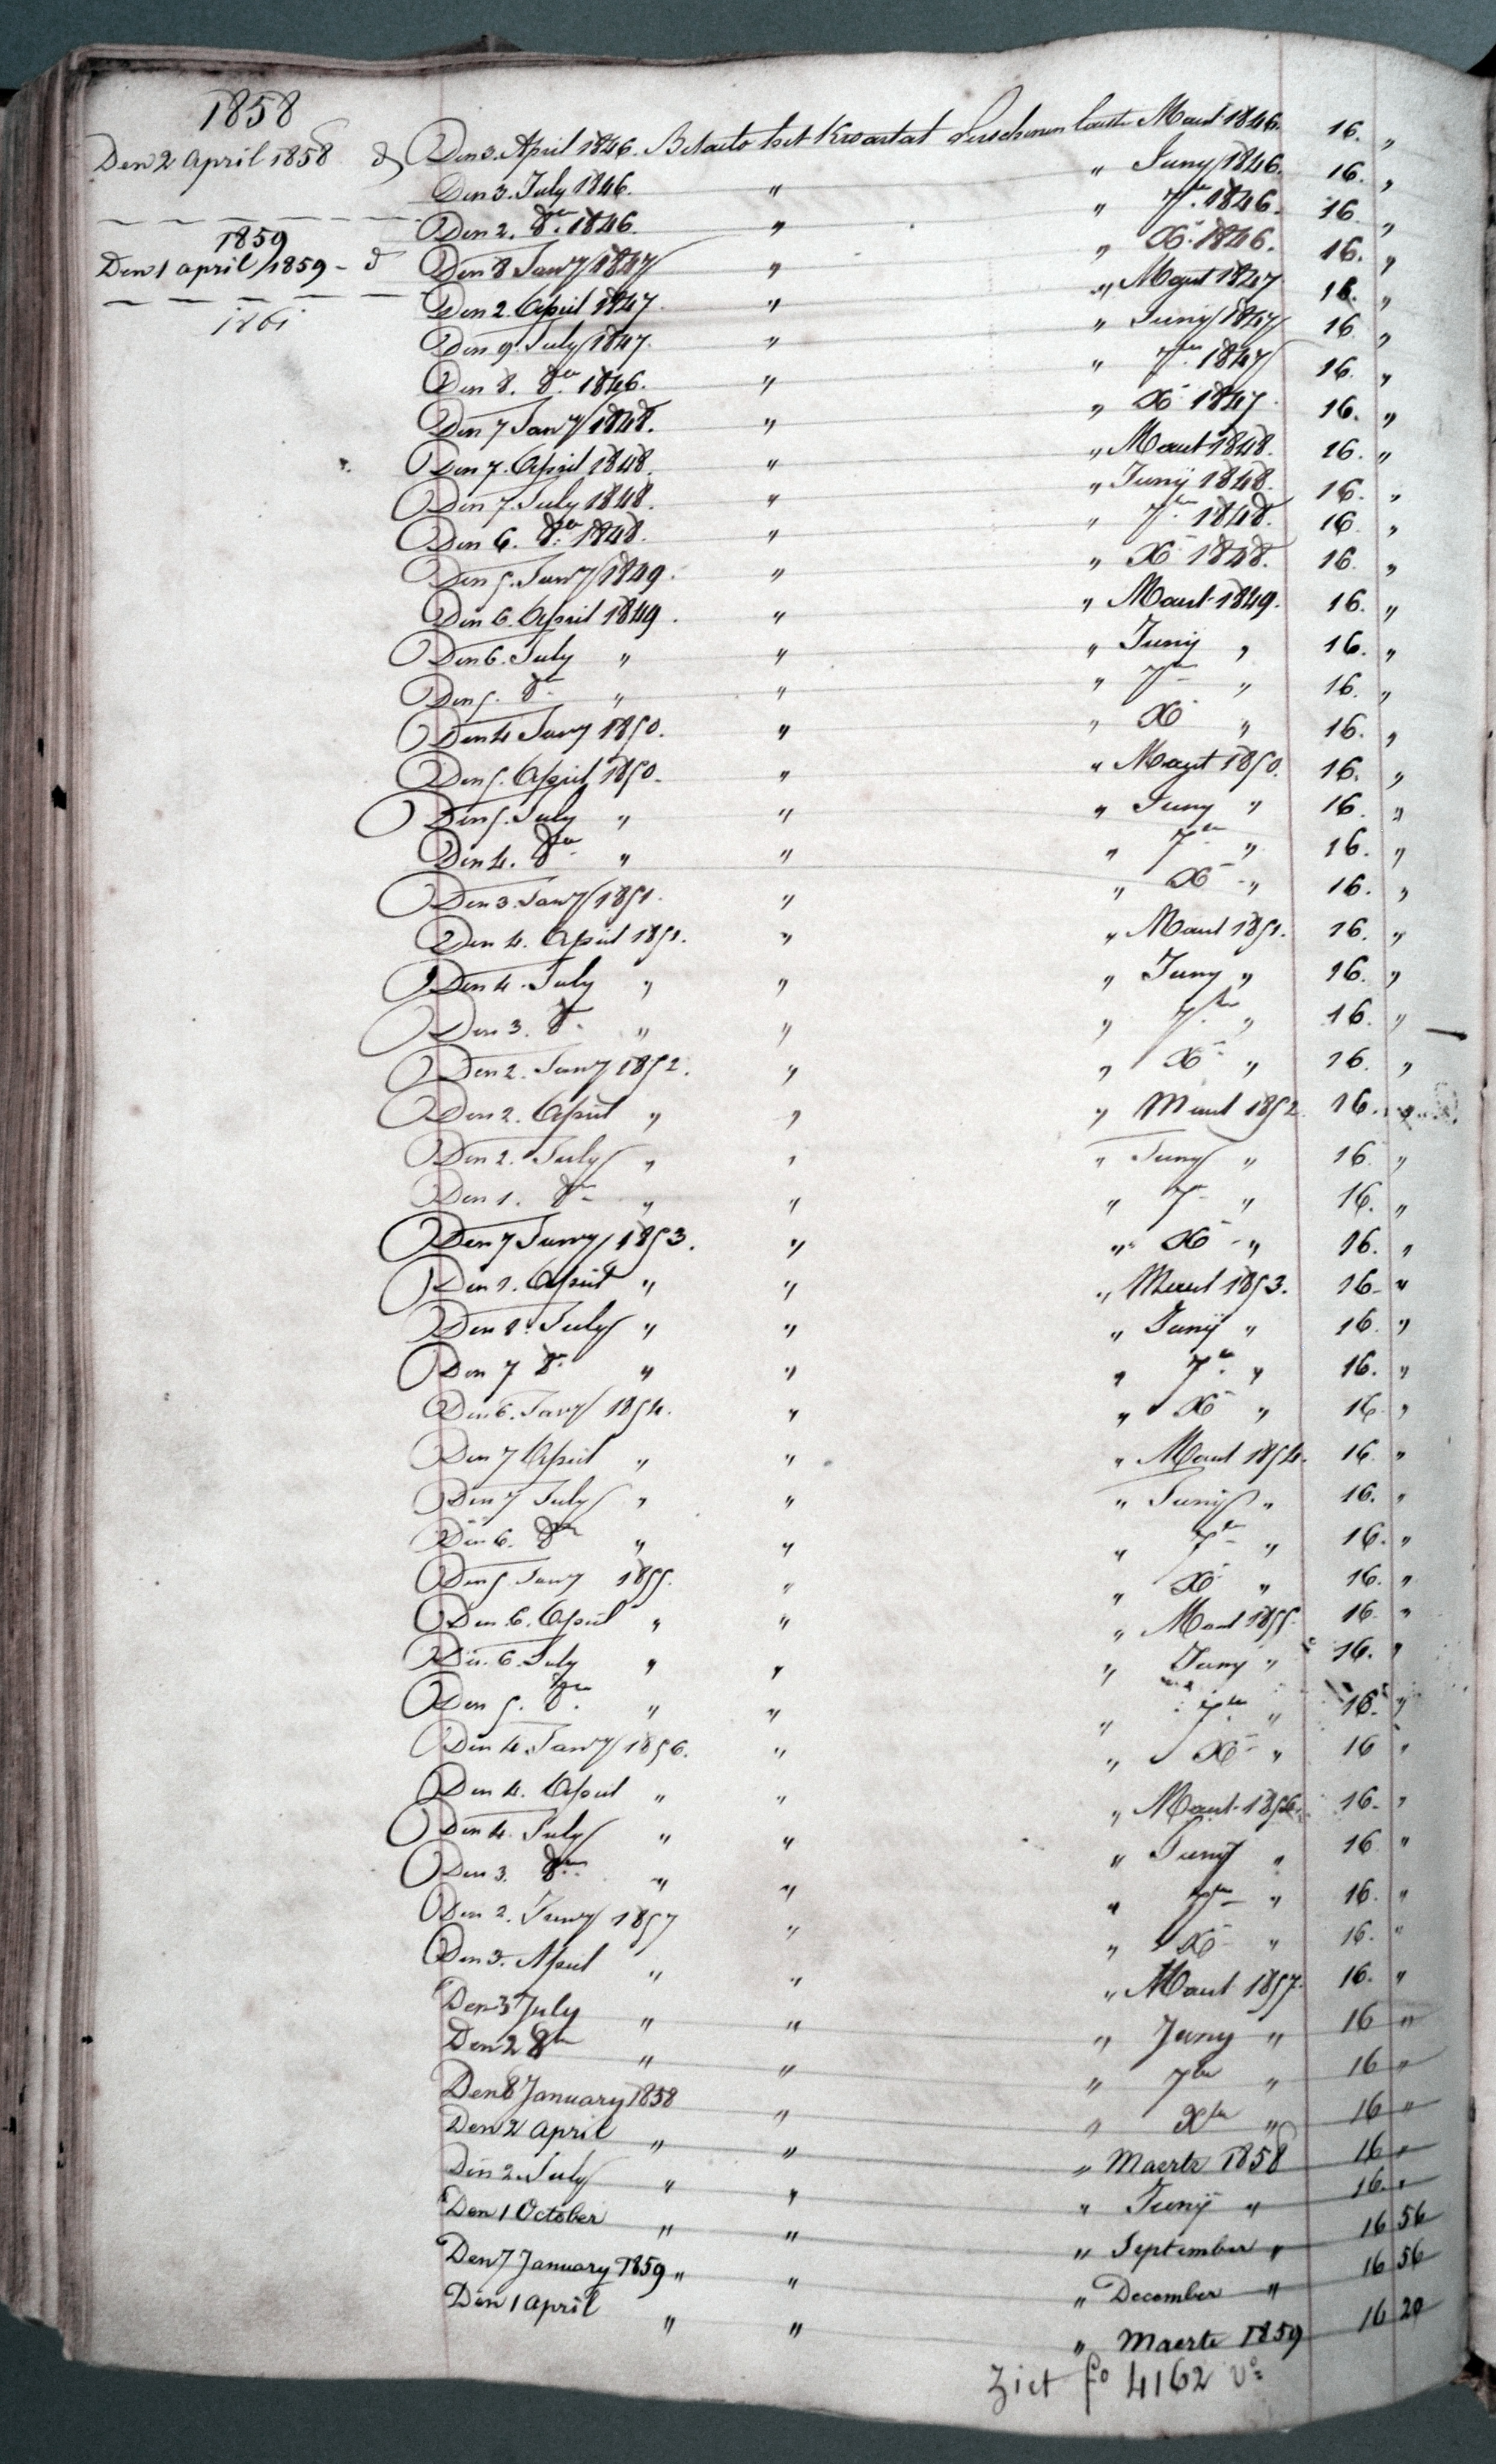 1858
Den 2 April 1858
1859
Den 1 april 1859 -
1861
Den 3. April 1846. Betaelt het Kwartal verschenen laesten Maert 1846. 16. "
Den 3. July 1846. " " Juny 1846. 16. "
Den 2. 8er 1846. " " 7er 1846. 16. "
Den 8 Janry 1847 " " Xr 1846. 16. "
Den 2. April 1847. " " Maert 1847 16. "
Den 9 July 1847. " " Juny 1847 16. "
Den 8. 8er 1846. " " 7er 1847 16. "
Den 7 Janry 1848. " " Xr 1847. 16. "
Den 7. April 1848. " " Maert 1848. 16. "
Den 7. July 1848. " " Junij 1848. 16. "
Den 6. 8er 1848. " " 7er 1848. 16. "
Den 5. Janry 1849. " " Xr 1848. 16. "
Den 6. April 1849. " " Maert 1849. 16. "
Den 6. July " " " Junij " 16. "
Den 5. 8er " " " 7er " 16. "
Den 4 Janry 1850. " " Xr " 16. "
Den 5. April 1850. " " Maert 1850. 16. "
Den 5. July " " " Juny " 16. "
Den 4. 8er " " " 7er " 16. "
Den 3. Janry 1851. " " Xr " 16. "
Den 4. April 1851. " " Maert 1851. 16. "
Den 4. July " " " Juny " 16. "
Den 3. 8er " " " 7er " 16. "
Den 2. Janry 1852. " " Xr " 16. "
Den 2. April " " " Maert 1852. 16. "
Den 2. July " " " Juny " 16 "
Den 1. 8er " " " 7er " 16. "
Den 7 Janry 1853. " " Xr " 16. "
Den 1. April " " " Maert 1853. 16. "
Den 1. July " " " Junij " 16. "
Den 7 8er " " " 7er " 16. "
Den 6. Janry 1854. " " Xr " 16. "
Den 7 April " " " Maert 1854. 16. "
Den 7 July " " " Junij " 16. "
Den 6. 8er " " " 7er " 16. "
Den 5 Janry 1855. " " Xr " 16. "
Den 6. April " " " Maert 1855. 16. "
Den 6. July " " " Juny " 16. "
Den 5. 8er " " " 7er " 16. "
Den 4. Janry 1856. " " Xr " 16 "
Den 4. April " " " Maert 1856. 16. "
Den 4. July " " " Juny " 16 "
Den 3. 8er " " " 7er " 16. "
Den 2. Janry 1857 " " Xr " 16. "
Den 3. April " " " Maert 1857. 16. "
Den 3 July " " " Juny " 16 "
Den 2 8er " " " 7ber " 16 "
Den 8 January 1858 " " Xber " 16 "
Den 2 April " " " Maerte 1858 16 "
Den 2. July " " " Junij " 16. "
Den 1 October " " " September " 16 56
Den 7 January 1859 " " " December " 16 56
Den 1 April " " " Maerte 1859 16 20
Ziet fo 4162 vo